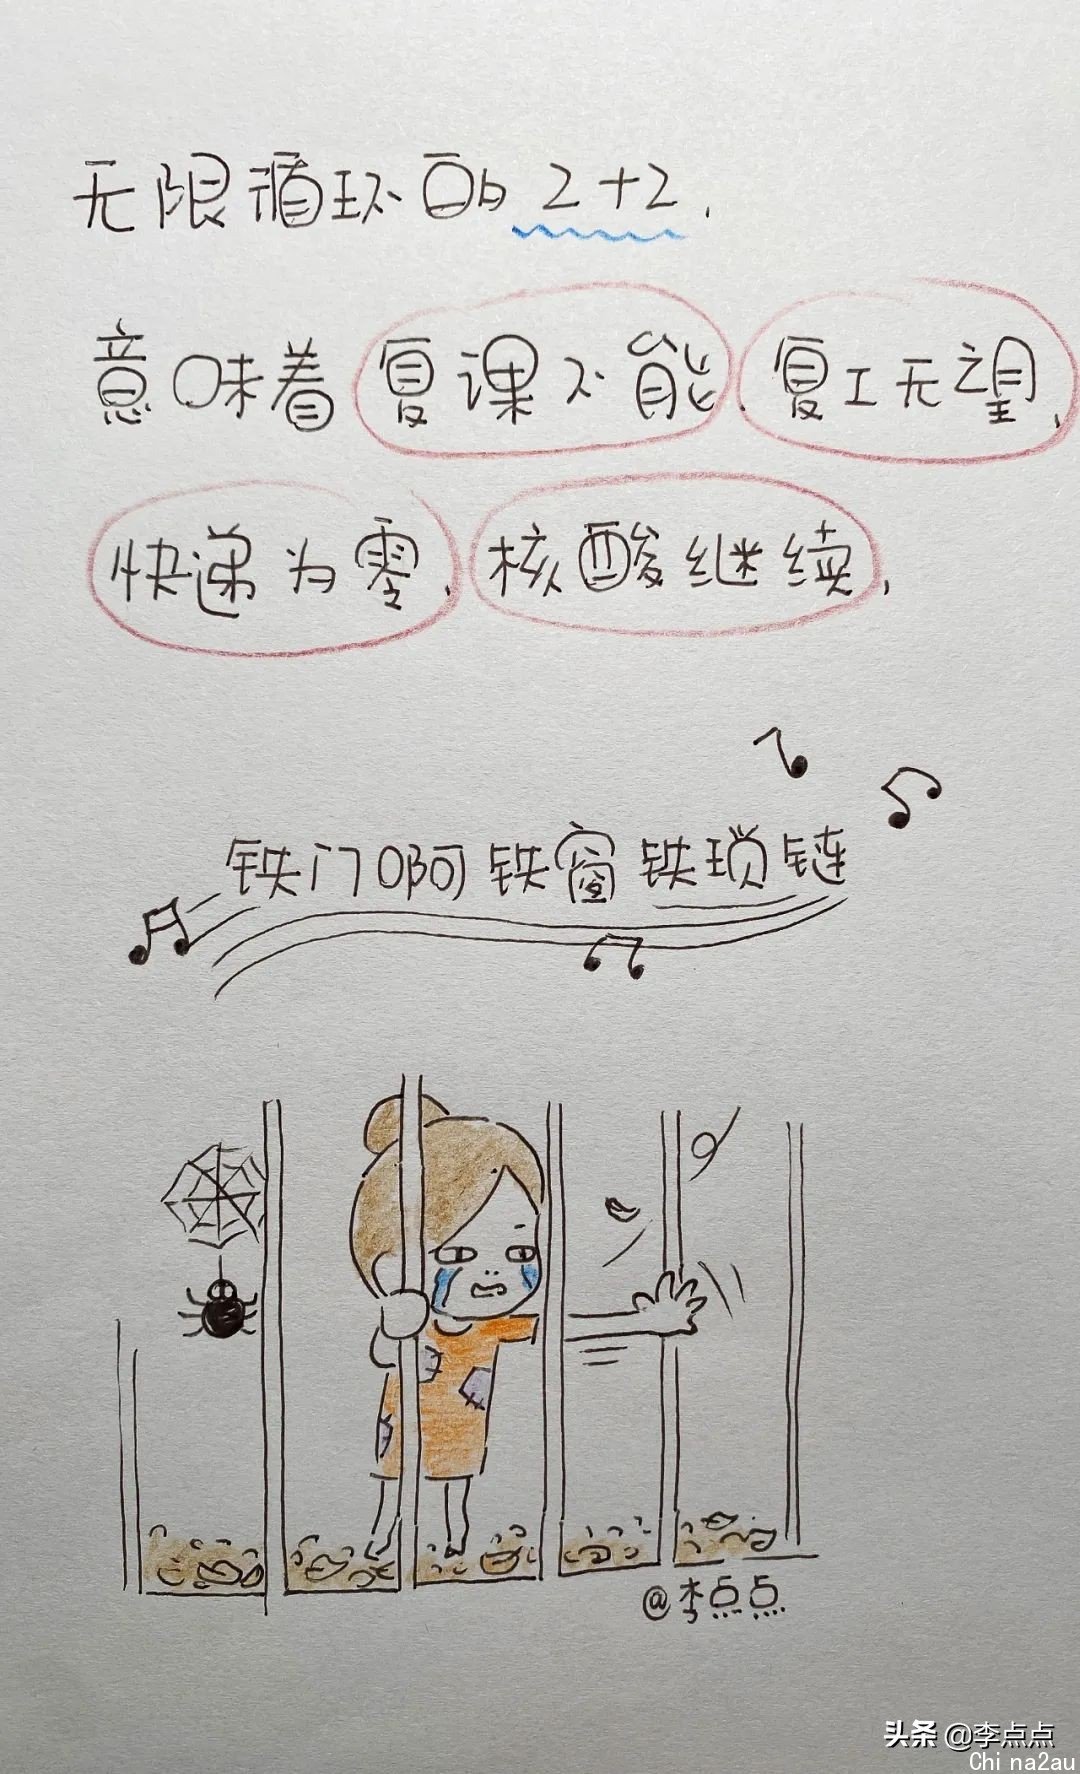 无限循环的2+2,
意味着复课不能,复工无望,
快递为零,核酸继续,
铁门啊铁窗铁锁链
@李点点
头条 @李点点
China2au